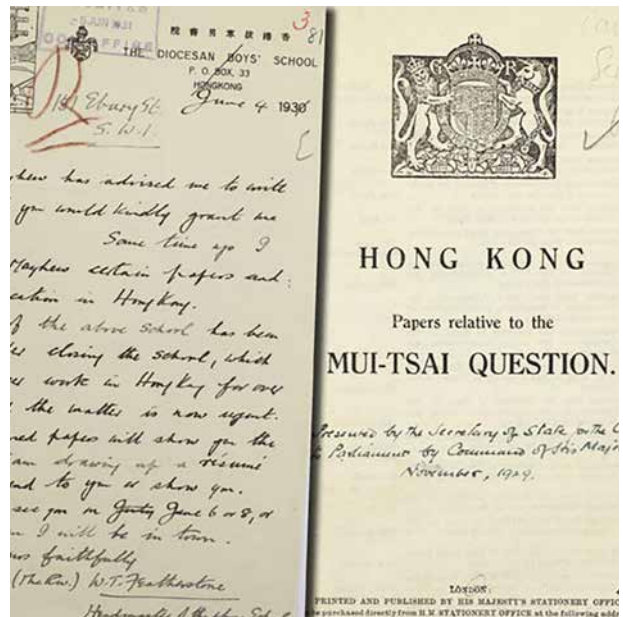 25 JUN 1931
3
81
THE DIOCESAN BOYS' SCHOOL
P. O. BOX, 33
HONGKONG
June 4 193
Ebury St.
S. W. 1.
has advised me to write
you would kindly grant me
Some time ago I
Mayhew certain papers and
cation in HongKong.
of the above School has been
closing the school, which
work in HongKong for over
the matter is now urgent.
papers will show you the
am drawing up a résumé
to you or show you.
see you on July June 6 or 8, or
I will be in town.
faithfully
(The Rev.) W. T. Featherstone
G R
HONG KONG
Papers relative to the
MUI-TSAI QUESTION.
Presented by the Secretary of State for the C
to Parliament by Command of His Maj
November, 1929.
LONDON:
PRINTED AND PUBLISHED BY HIS MAJESTY'S STATIONERY OFFIC
be purchased directly from H.M. STATIONERY OFFICE at the following addr